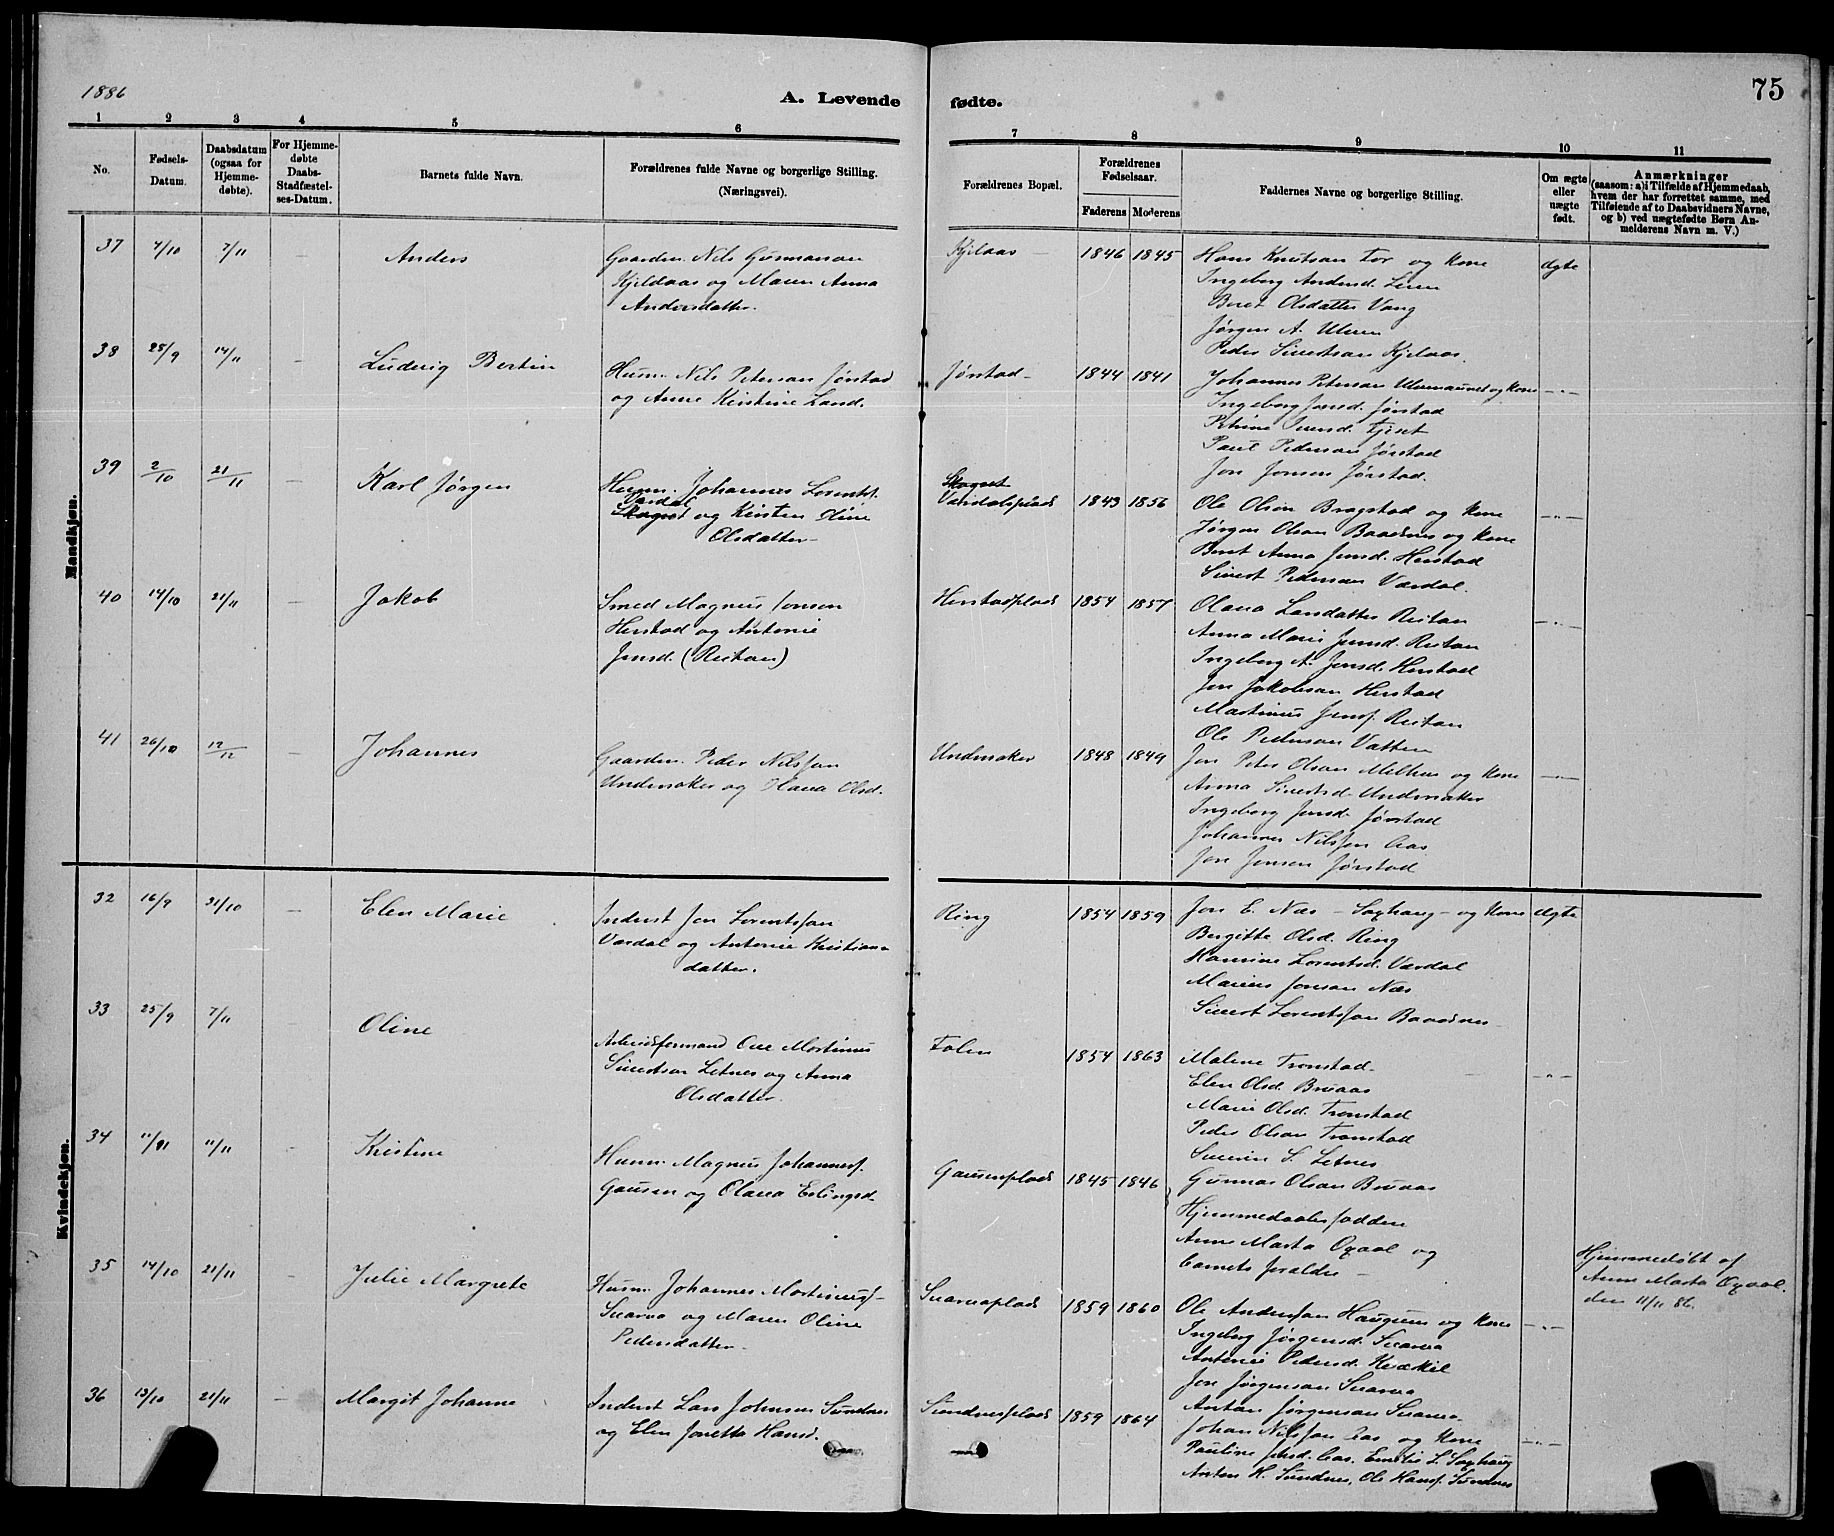 1886
A. Levende
fødte.
75
1 2 3 4 5 6 7 8 9 10 11
No.
Fødsels-
Datum.
Daabsdatum
(ogsaa for
Hjemme-
døbte).
For Hjemme-
døbte
Daabs-
Stadfæstel-
ses-Datum.
Barnets fulde Navn.
Forældrenes fulde Navne og borgerlige Stilling.
(Næringsvei).
Forældrenes Bopæl.
Forældrenes
Fødselsaar.
Faderens Moderens
Faddernes Navne og borgerlige Stilling.
Om ægte
eller
uægte
født.
Anmærkninger
(saasom: a) i Tilfælde af Hjemmedaab,
hvem der har forrettet samme, med
Tilføiende af to Daabsvidners Navne,
og b) ved uægtefødte Børn An-
melderens Navn m. V.)
Mandkjøn.
37 4/10 7/11 Anders
Gaardm. Nils Gunnarson
Kjeldaas og Maren Anna
Andersdatter.
Kjelaas 1846 1845
Hans Knutsen For og Kone
Ingeborg Andersd. Leren
Beret Olsdatter Vang
Jørgen A. Ulven
Peder Sivertsen Kjelaas.
ægte
38 28/9 14/11 Ludvig Bertin
Husm. Nils Petersen Jørstad
og Anne Kirstine Larsd.
Jørstad 1844 1841
Johannes Petersen og Kone
Ingeborg Jensd. Jørstad
Paul Pedersen Jørstad
Jon Jonsen Jørstad.
-"-
39 2/10 21/11 Karl Jørgen
Husm. Johannes Lorentsf.
Værdal
Skogset og Kirsten Oline
Olsdatter
Skogset
Værdalsplads 1843 1856
Ole Olsen Bragstad og Kone
Jørgen Olsen Baadsnes og Kone
Beret Anna Jensd. Herstad
Sivert Pedersen Værdal.
-"-
40 14/10 21/11 Jakob
Smed Magnus Jonsen
Herstad og Antonie
Jensd. (Reitan)
Herstadplads 1854 1857
Olava Larsdatter Reitan
Anna Marie Jensd. Reitan
Ingeborg A. Jensd. Herstad
Jon Jakobsen Herstad
Martinus Jensf. Reitan
Ole Pedersen Vatten
-"-
41 26/10 12/12 Johannes
Gaardm. Peder Nilssen
Undersaker og Olava Olsd.
Undersaker 1848 1849
Jon Peter Olsen Melhus og Kone
Anna Sivertsd. Undersaker
Ingeborg Jensd. Jørstad
Johannes Nilssen Aas
Jon Jonsen Jørstad
-"-
Kvindekjøn.
32 16/9 31/10 Elen Marie
Inderst Jon Lorentssen
Værdal og Antonie Kristians-
datter.
Ring 1854 1859
Jon E. Næs - Saxhaug - og Kone
Bergitte Olsd. Ring
Hansine Lorentsd. Værdal
Marius Jonsen Næs
Sivert Lorentssen Baadsnes
ægte
33 25/9 7/11 Oline
Arbeidsformand Ove Martinus
Sivertsen Letnes og Anna
Olsdatter.
Folen 1854 1863
Malene Tronstad
Elen Olsd. Bruaas
Marie Olsd. Tronstad
Peder Olsen Tronstad
Severin S. Letnes
Gunnar Olsen Bruaas
-"-
34 11/11 11/11 Kristine
Husm. Magnus Johannesf.
Gausen og Olava Erlingsd.
Gausenplads 1845 1846
Hjemmedaabsfaddere
Anne Marta Oxaal og
barnets foraldre
Hjemmedøbt af
Anne Marta Oxaal.
den 11/11 86.
35 14/10 21/11 Julie Margrete
Husm. Johannes Martinusf.
Suarva og Maren Oline
Pedersdatter.
Suarvaplads 1859 1860
Ole Anderssen Haugum og Kone
Ingeborg Jørgensd. Suarva
Antonie Pedersd. Kvækil
Jon Jørgensen Suarva
Anton Jørgensen Suarva
-"-
36 13/10 21/11 Margit Johanne
Inderst Lars Johnsen Sundnes
og Elen Jonetta Hansd.
Sundnesplads 1859 1864
Johan Nilssen Aas og Kone
Pauline Johsd. Aas. Emilie L. Saxhaug
Anton H. Sundnes, Ole Hansf. Sundnes
-"-